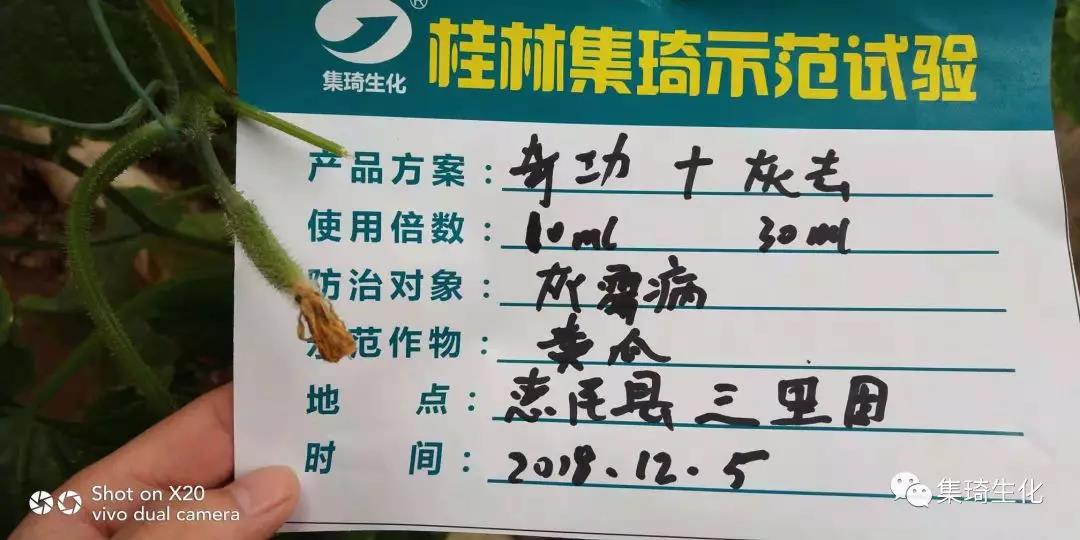 ®
集琦生化
桂林集琦示范试验
产品方案：奇功 + 灰去
使用倍数：10ml 30ml
防治对象：灰霉病
范作物：黄瓜
地 点：惠民县 三里田
时 间：2018.12.5
Shot on X20
vivo dual camera
集琦生化